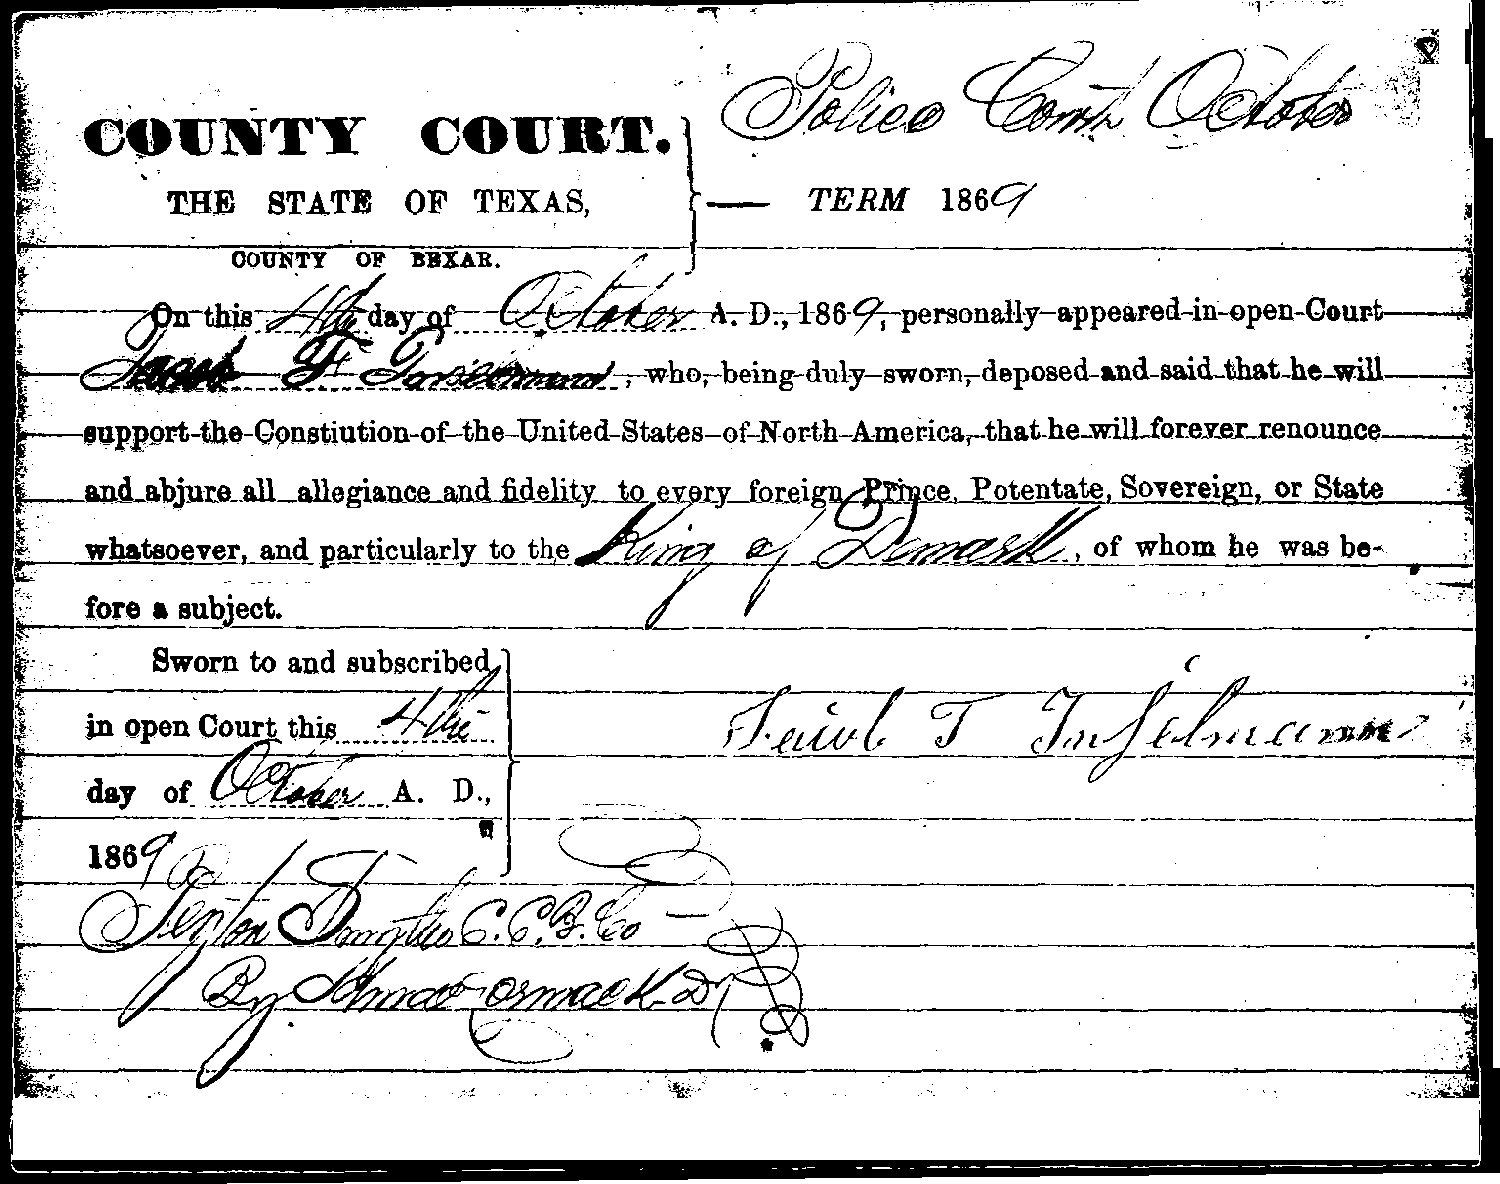 Police Court October
COUNTY COURT.
THE STATE OF TEXAS,
— TERM 1869
COUNTY OF BEXAR.
On this 4th day of October A. D., 1869, personally appeared in open Court
Jacob F , who, being duly sworn, deposed and said that he will
support the Constiution of the United States of North America, that he will forever renounce
and abjure all allegiance and fidelity to every foreign Prince, Potentate, Sovereign, or State
whatsoever, and particularly to the King of Demark, of whom he was be-
fore a subject.
Sworn to and subscribed
in open Court this 4th
day of October A. D.,
1869
C.C.B.Co
By